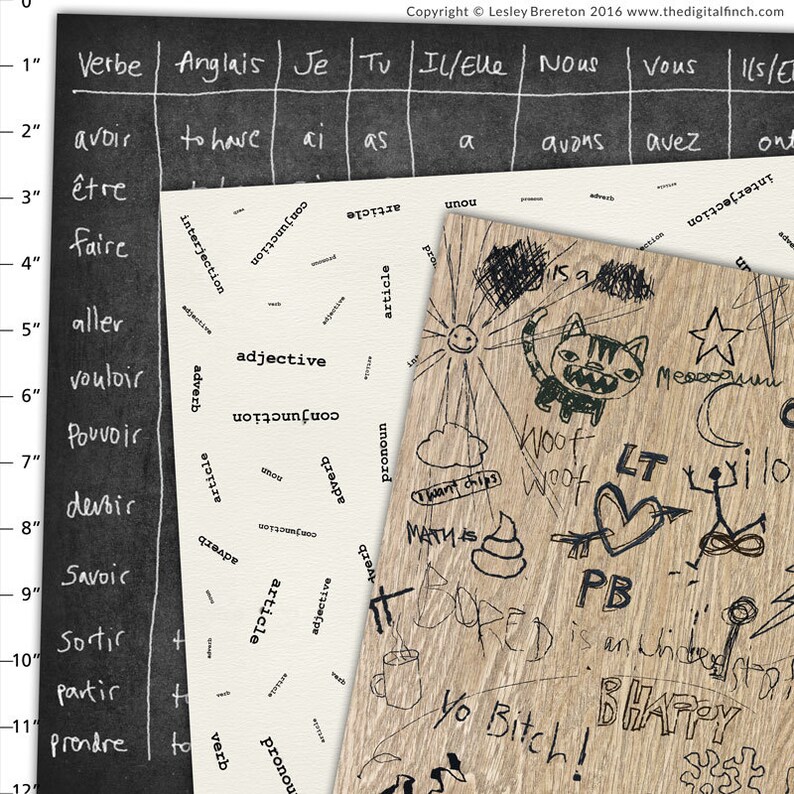 Copyright © Lesley Brereton 2016 www.thedigitalfinch.com
0
1"
2"
3"
4"
5"
6"
7"
8"
9"
10"
11"
12"
Verbe Anglais Je Tu Il/Elle Nous Vous Ils/El
avoir to have ai as a avons avez ont
être
faire
aller
vouloir
Pouvoir
devoir
Savoir
Sortir t
partir to
prendre to
interjection
conjunction
article
noun
pronoun
adverb
article
interjection
pronoun
article
adjective
verb
adjective
adjective
article
adverb
conjunction
pronoun
article
noun
adverb
conjunction
adverb
adverb
noun
article
adjective
adverb
verb
article
verb
article
verb
pronoun
is a
Meooooowww
Woof
Woof
LT
I want chips
MATH is
PB
BORED is an Understa
B HAPPY
Yo Bitch!